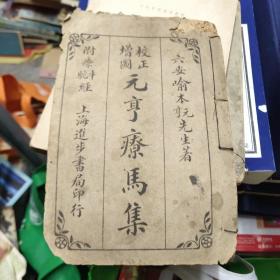 六安喻本亨元先生著
校正
增圖
元亨療馬集
附療牛
駝經
上海進步書局印行